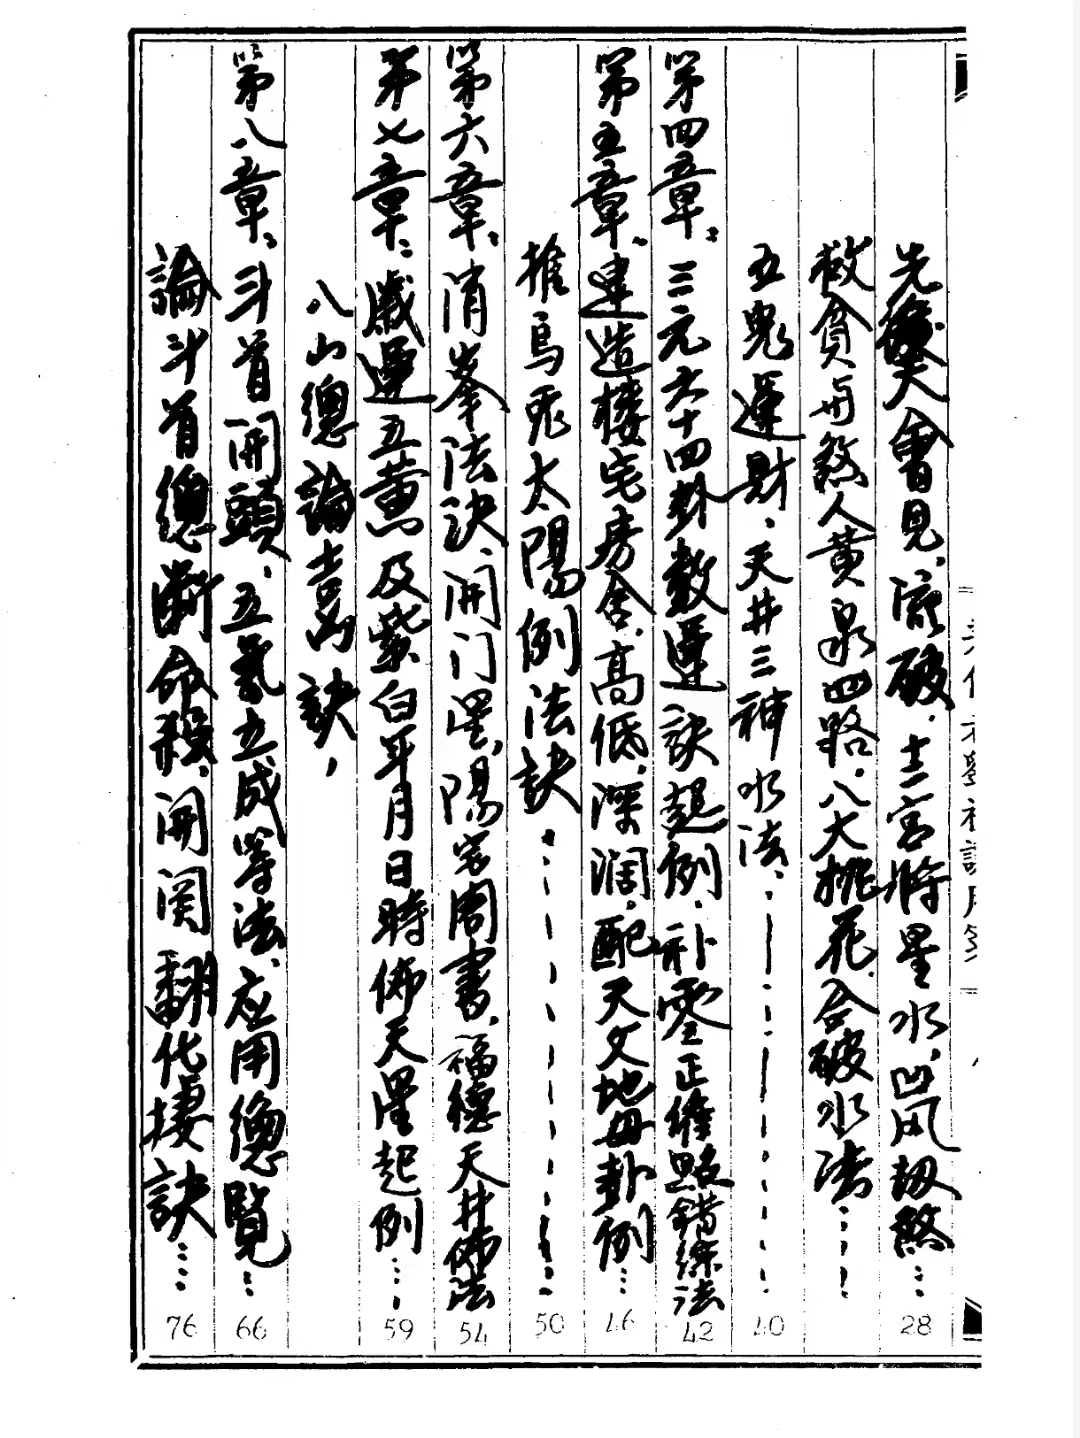 先後天會見、流破、十二宮將星水、凹风劫煞…28
救貧与煞人黄泉四路、八大桃花、合破水法…
五鬼運財、天井三神水法、…40
第四章：三元六十四卦数運訣起例、补零正催照錯綜法 42
第五章、建造楼宅房舍、高低、深润、配天文地母卦例…46
推烏兎太陽例法訣…50
第六章、消峯法決、開门星、陽宅周書、福德天井佈法 54
第七章：歲運五黄及紫白年月日時佈天星起例…59
八山總論喜訣，
第八章、斗首開頭、五氣五成等法、应用總覽…66
論斗首總断命殺、開関翻化棲訣…76